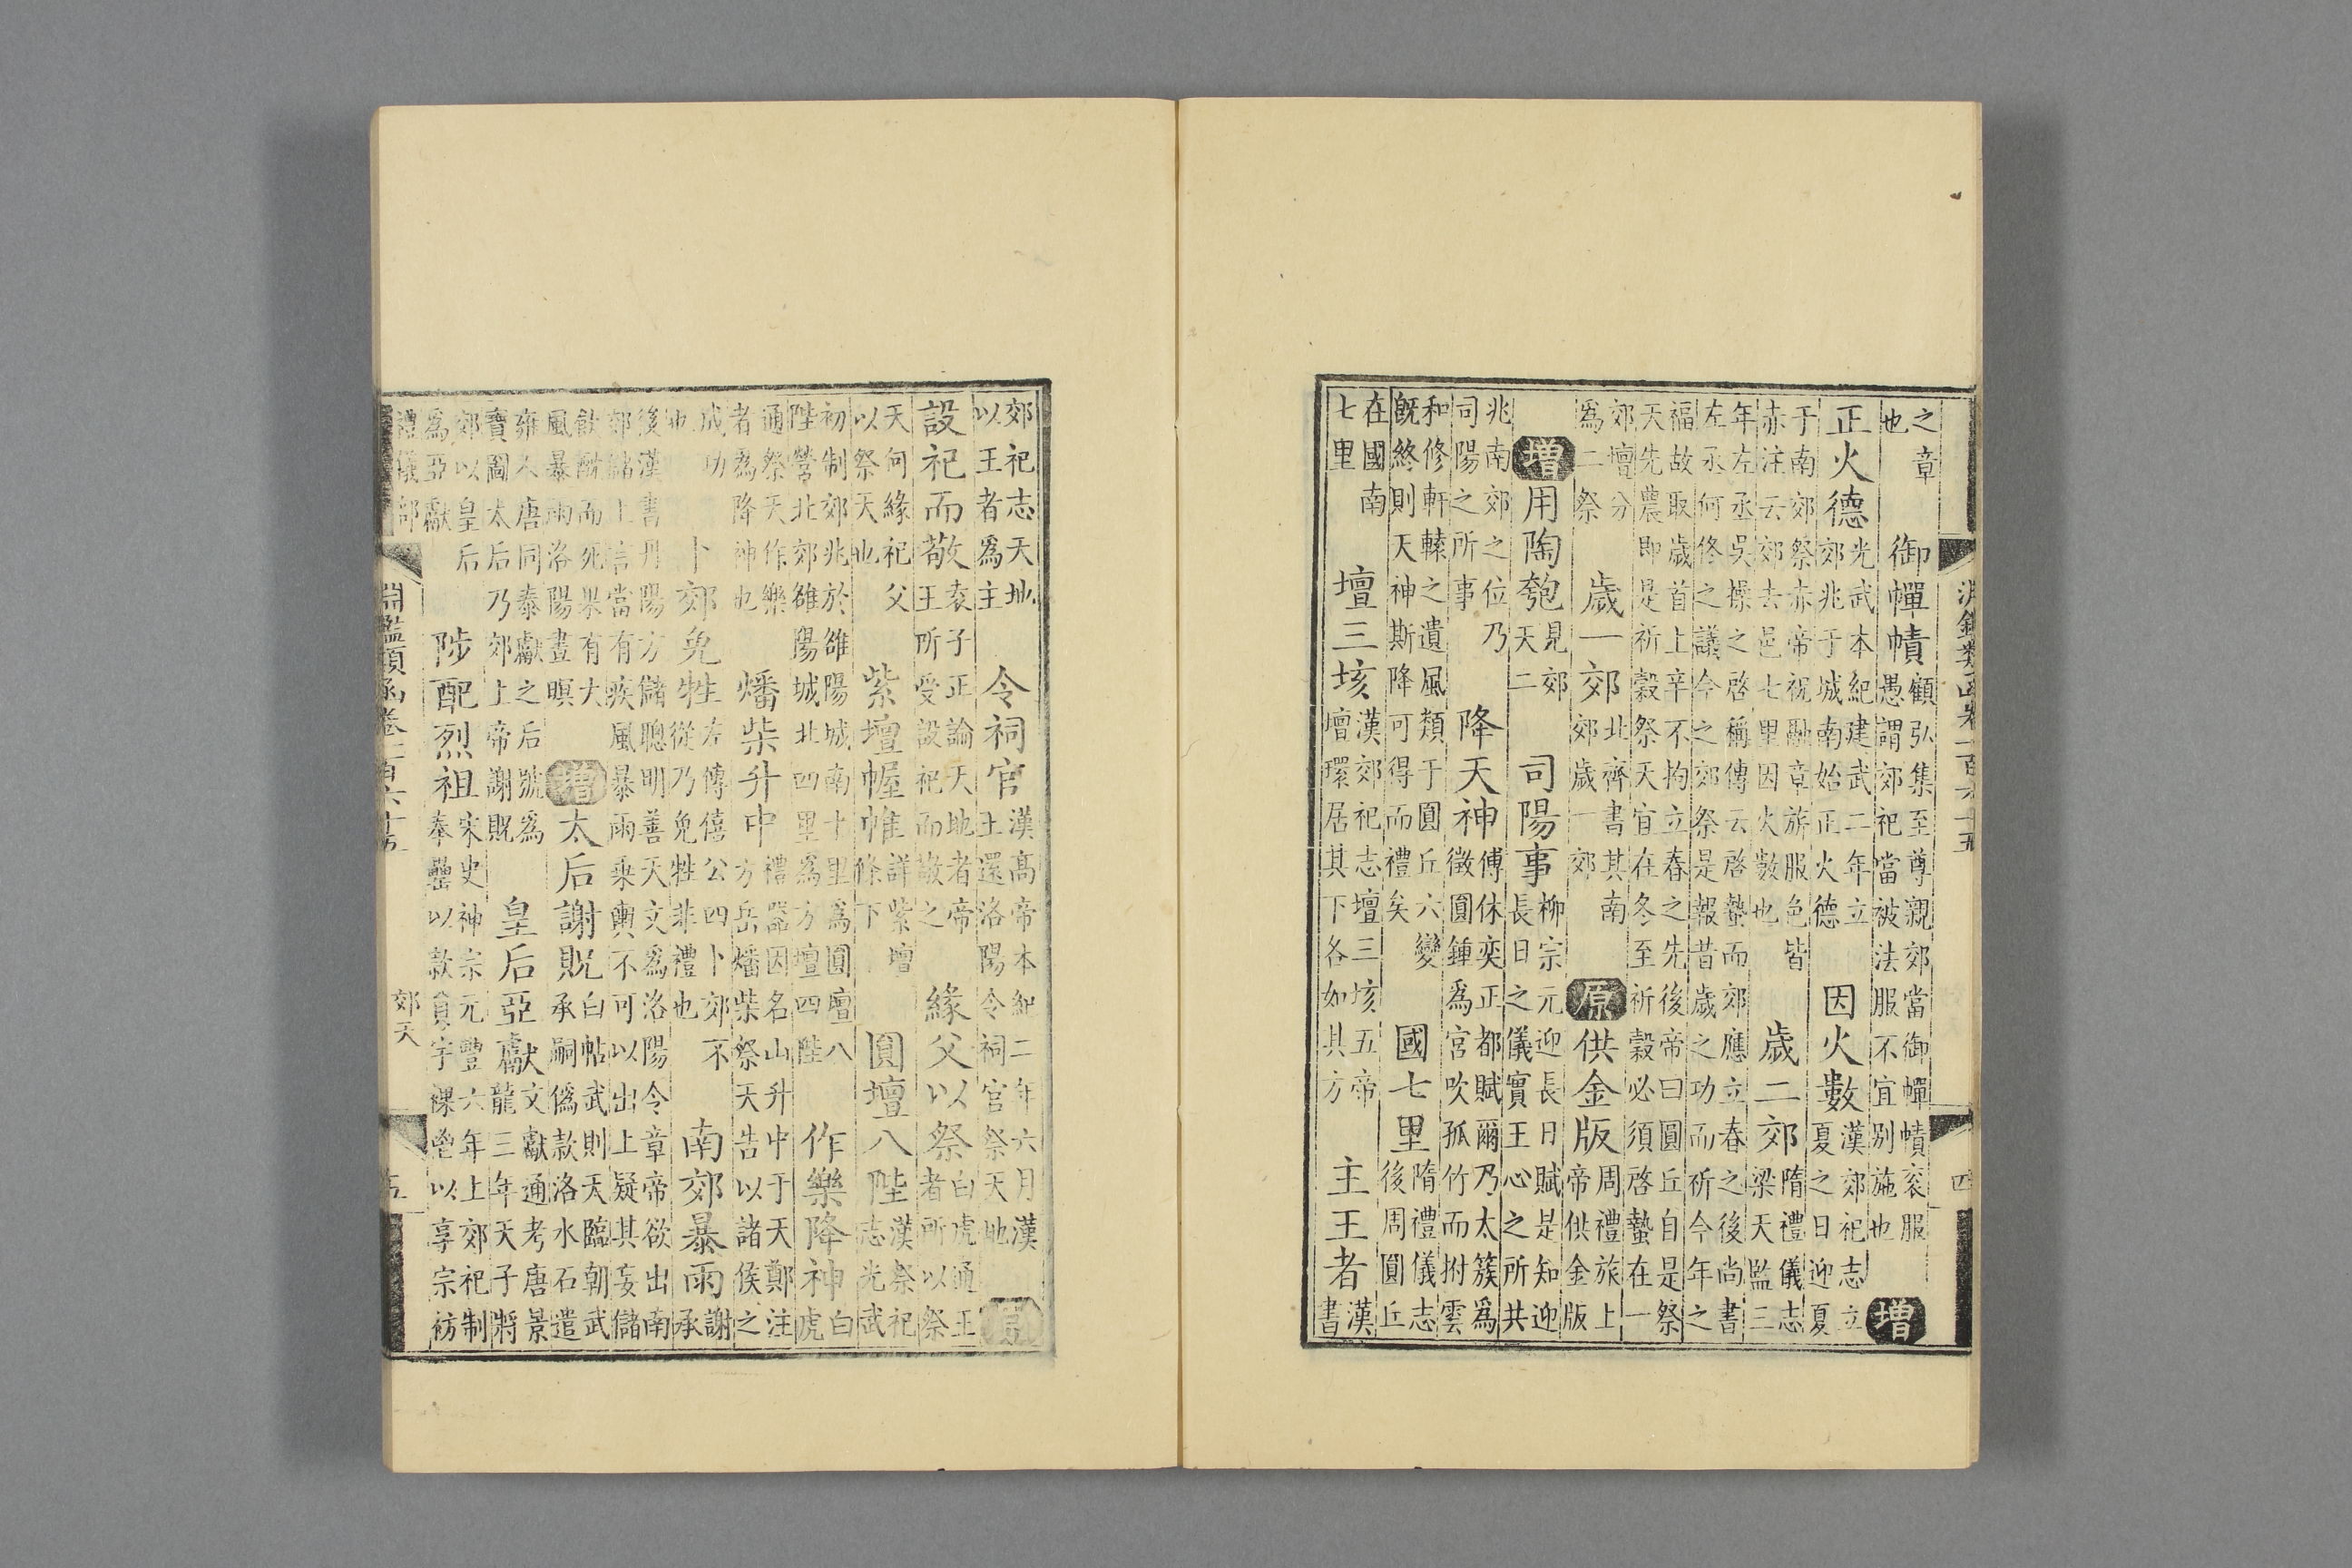 淵鑑類函卷一百六十五
四
之章
也
御蟬幘
顧弘集至尊親郊當御蟬幘袞服
愚謂郊祀當被法服不宜別施也
增
正火德
光武本紀建武二年立
郊兆于城南始正火德
因火數
漢郊祀志立
夏之日迎夏
于南郊祭赤帝祝融章旂服色皆
赤注云郊去邑七里因火數也
歲二郊
隋禮儀志
梁天監三
年左丞吳操之啓稱傳云啓蟄而郊郊應立春之後尚書
左丞何修之議今之郊祭是報昔歲之功而祈今年之
福故取歲首上辛不拘立春之先後帝曰圓丘自是祭
天先農即是祈穀祭天宜在冬至祈穀必須啓蟄在一
郊壇分
爲二祭
歲一郊
北齊書其南
郊歲一郊
原
供金版
周禮旅上
帝供金版
增
用陶匏
見郊
天二
司陽事
柳宗元迎長日賦是知迎
長日之儀實王心之所共
兆南郊之位乃
司陽之所事
降天神
傅休奕正都賦爾乃太簇爲
徵圓鍾爲宮吹孤竹而拊雲
和修軒轅之遺風類于圓丘六變
旣終則天神斯降可得而禮矣
國七里
隋禮儀志
後周圓丘
在國南
七里
壇三垓
漢郊祀志壇三垓五帝
壇環居其下各如其方
主王者
漢
書
郊祀志天地
以王者爲主
令祠官
漢高帝本紀二年六月漢
王還洛陽令祠官祭天地
原
設祀而敬
袁子正論天地者帝
王所受設祀而敬之
緣父以祭
白虎通王
者所以祭
天何緣祀父
以祭天也
紫壇幄帷
詳紫壇
條下
圓壇八陛
漢祭祀
志光武
初制郊兆於雒陽城南七里爲圓壇八
陛營北郊雒陽城北四里爲方壇四陛
作樂降神
白
虎
通祭天作樂
者爲降神也
燔柴升中
禮器因名山升中于天鄭注
方岳燔柴祭天告以諸侯之
成功
也
卜郊免牲
左傳僖公四卜郊不
從乃免牲非禮也
南郊暴雨
謝
承
後漢書丹陽方儲聰明善天文爲洛陽令章帝欲出南
郊儲上言當有疾風暴雨乘輿不可以出上疑其妄儲
飲酖而死果有大
風暴雨洛陽晝暝
增
太后謝貺
白帖武則天臨朝武
承嗣僞款洛水石遣
雍人唐同泰獻之后號爲
寶圖太后乃郊上帝謝貺
皇后亞獻
文獻通考唐景
龍三年天子將
郊以皇后
爲亞獻
陟配烈祖
宋史神宗元豐六年上郊祀制
奉罍以款員宇祼鬯以享宗祊
禮儀部
淵鑑類函卷一百六十五
郊天
五